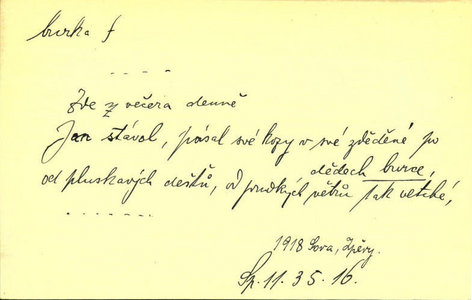 burka f
. . . .
Zde z večera denně
Jan stával, pásal své kozy v své zděděné po
dědoch burce,
od pluskavých dešťů, od prudkých větrů tak vetché,
. . . . . .
1918 Sova, Zpěvy.
Sp. 11. 35. 16.